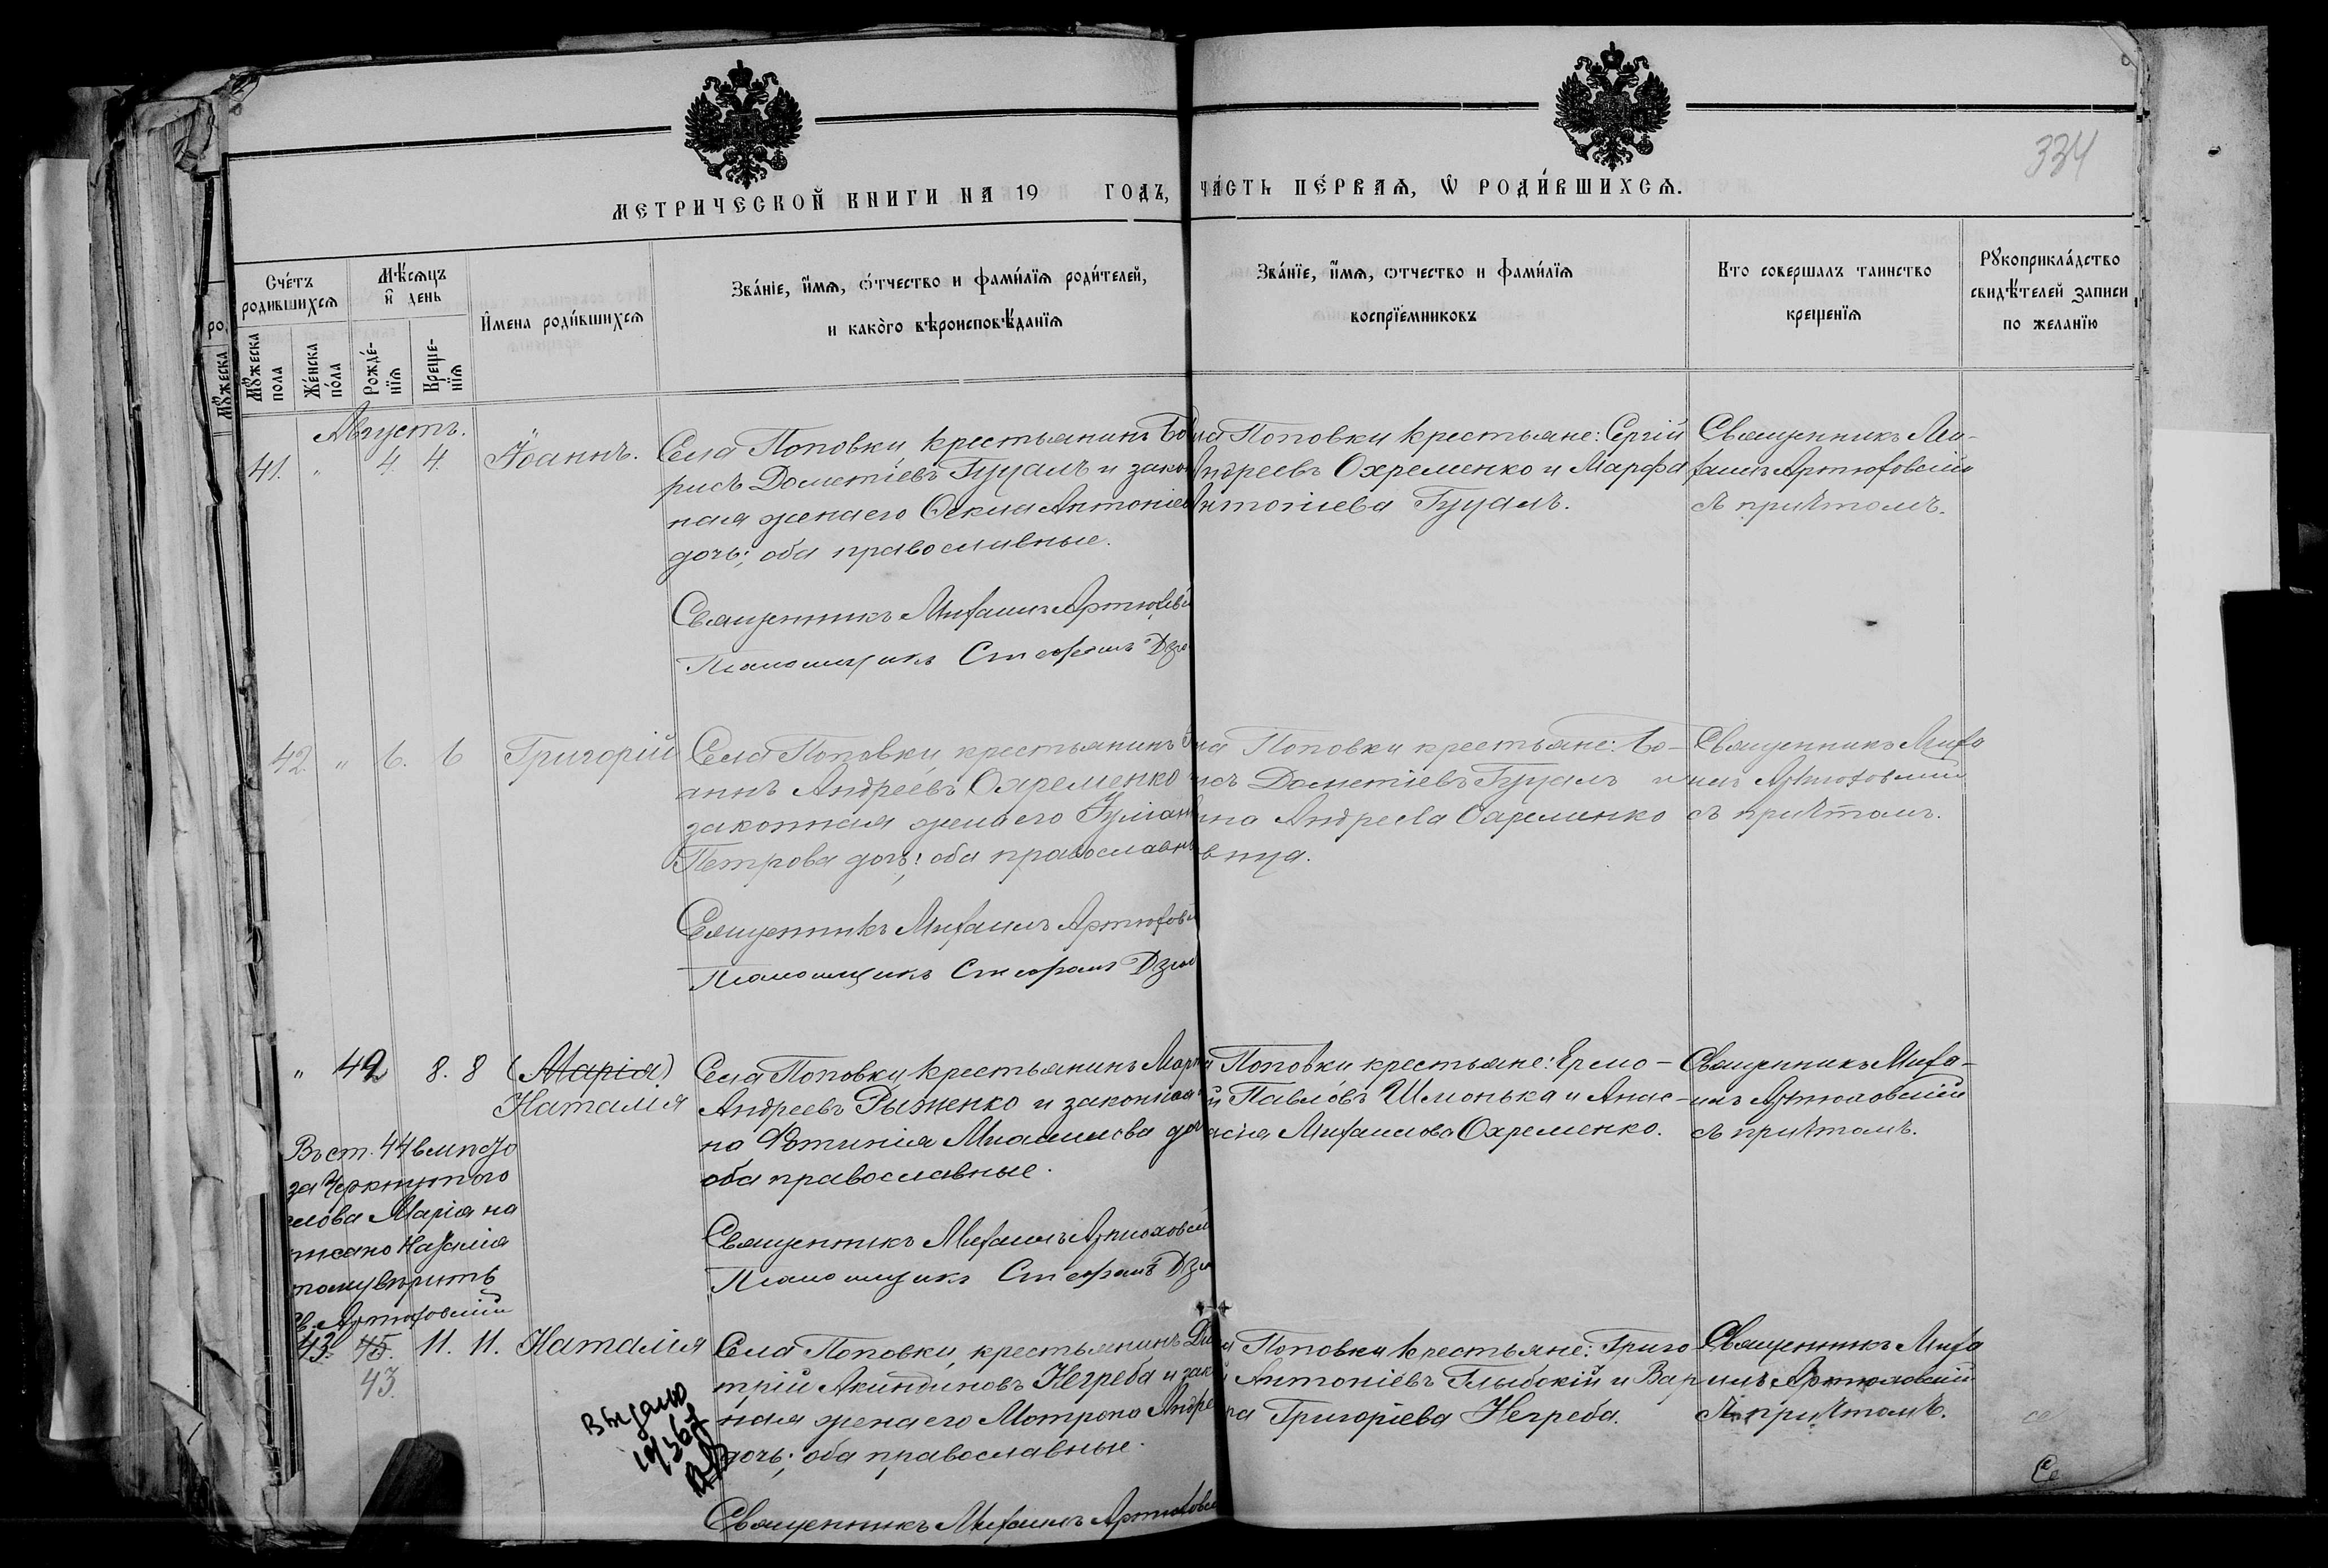 334
МЕТРИЧЕСКОЙ КНИГИ НА 19 ГОДЪ, ЧА́СТЬ ПЕ́РВАѦ, Ѡ҆ РОДИ́ВШИХСѦ.
Сче́тъ родившихсѧ
Мꙋ́жеска пола
Же́нска по́ла
Мѣ́сѧцъ и҆ день
Рожде́-нїѧ
Креще-нїѧ
И҆мена роди́вшихсѧ
Зва́нїе, и҆́мѧ, ѻ҆́тчество и фами́лїѧ роди́телей,
и како́го вѣроисповѣ́данїѧ
Зва́нїе, и҆́мѧ, ѻтчество и фами́лїѧ
воспрїе́мниковъ
Кто совершалъ таинство
креще́нїѧ
Рꙋкоприкла́дство
свидѣ́телей записи
по желанїю
Августъ.
41. " 4. 4. Іоаннъ.
Села Поповки, крестьянинъ Бо
рисъ Дометіевъ Гуцалъ и закон
ная жена его Ѳекла Антоніев
дочь; оба православные.
Священникъ Михаилъ Артюховскій
Псаломщикъ Стефанъ Дзю
ла Поповки крестьяне: Сергій
Андреевъ Охременко и Марѳа
Антоніева Гуцалъ.
Священникъ Ми-
хаилъ Артюховскій
съ причтомъ.
42. " 6. 6 Григорій
Села Поповки, крестьянинъ
аннъ Андреевъ Охременко
законная жена его Іуліан
Петрова дочь; оба православн
Священникъ Михаилъ Артюхов
Псаломщикъ Стефанъ Дзю
ла Поповки крестьяне: Бо-
исъ Дометіевъ Гуцалъ и
на Андреева Охременко
вица.
Священникъ Миха
илъ Артюховскій
съ причтомъ.
" 42 8. 8 (Марія)
Наталія
Села Поповки, крестьянинъ Мар
Андреевъ Рыженко и законная
на Фотинія Михаилова доч
оба православные.
Священникъ Михаилъ Артюховск
Псаломщикъ Стефанъ Дзю
Поповки крестьяне: Ермо-
й Павловъ Шмонька и Анас-
асія Михаилова Охременко.
Священникъ Миха-
илъ Артюховскій
съ причтомъ.
Въ ст. 44 вмѣсто
зачеркнутого
слова Марія на
писано Наталія
тому вѣрить
св. Артюховскій
43. 45. 11. 11. Наталія
43.
Села Поповки, крестьянинъ Ди
трій Акиндиновъ Негреба и зак
ная жена его Мотрона Андре
дочь; оба православные.
Священникъ Михаилъ Артюховс
Поповки крестьяне: Григо
Антоніевъ Глыбскій и Вар
ра Григоріева Негреба.
Священникъ Миха
илъ Артюховскій
съ причтомъ.
Выдано
1936 г.